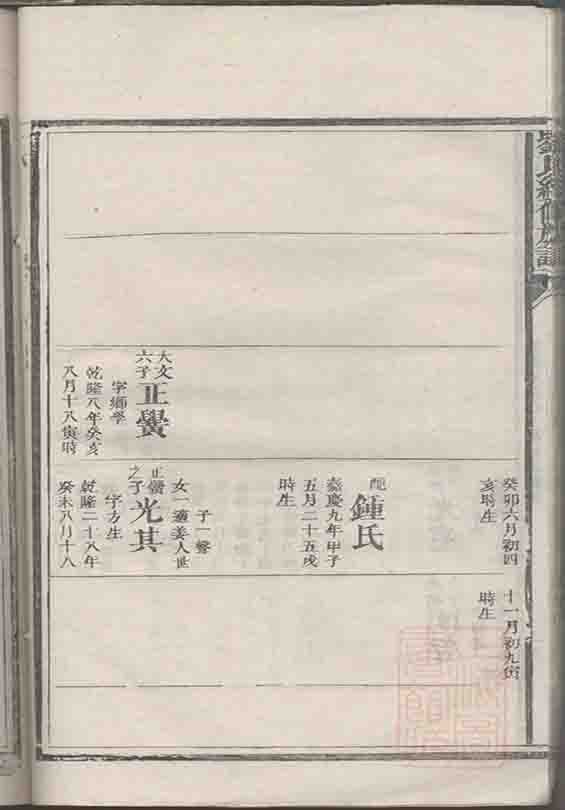 劉氏續修族譜
癸卯六月初四
亥時生
十一月初九寅
時生
配
鍾氏
嘉慶九年甲子
五月二十五戌
時生
大文
六子
正黌
字鄉學
乾隆八年癸亥
八月十八寅時
子一聲
女一適姜人世
正黌
之子
光其
字方生
乾隆二十八年
癸未八月十八